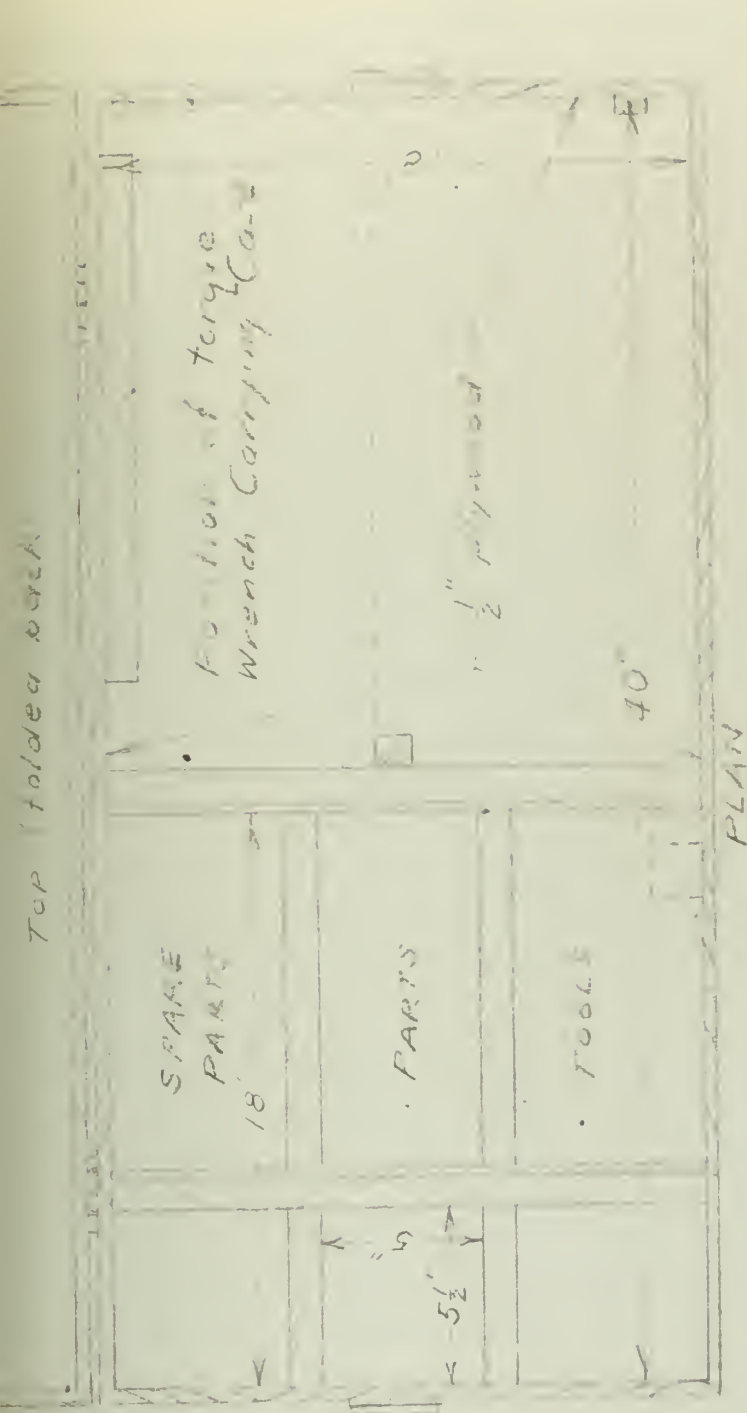 TOP (folded back)
Position of torque
Wrench Carrying Case
1/2" plywood
SPARE
PARTS
18"
PARTS
TOOLS
5"
5 1/2"
40"
PLAN